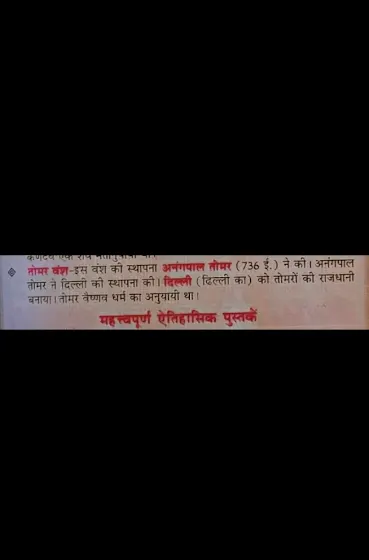 तोमर वंश-इस वंश की स्थापना अनंगपाल तोमर (736 ई.) ने की। अनंगपाल
तोमर ने दिल्ली की स्थापना की। दिल्ली (ढिल्ली का) को तोमरों की राजधानी
बनाया। तोमर वैष्णव धर्म का अनुयायी था।
महत्त्वपूर्ण ऐतिहासिक पुस्तकें